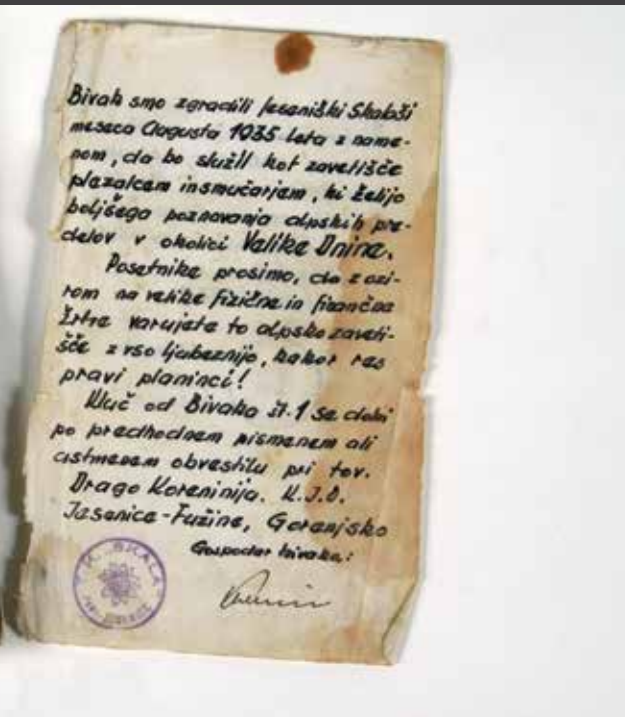 Bivak smo zgradili jeseniški Skalaši
meseca Augusta 1935 leta z name-
nom, da bo služil kot zavetišče
plezalcem in smučarjem, ki želijo
boljšega poznavanja alpskih pre-
delov v okolici Velike Dnine.
Posetnike prosimo, da z ozi-
rom na velike fizične in finančne
žrtve varujete to alpsko zaveti-
šče z vso ljubeznijo, kakor res
pravi planinci!
Kluč od Bivaka št. 1 se dobi
po predhodnem pismenem ali
ustmenem obvestilu pri tov.
Drago Koreninija. K.I.D.
Jesenice-Fužine, Gorenjsko
Gospodar bivaka:
SKALA